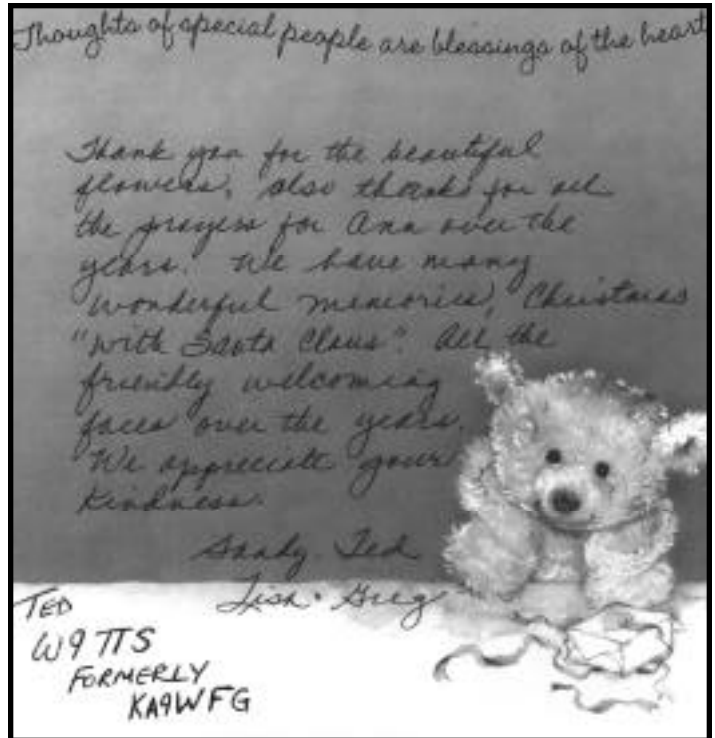 Thoughts of special people are blessings of the heart
Thank you for the beautiful
flowers, also thanks for all
the prayers for Ann over the
years. We have many
wonderful memories, Christmas
"with Santa Claus". All the
friendly welcoming
faces over the years.
We appreciate your
kindness.
Sandy Ted
Lisa · Greg
TED
W9TTS
FORMERLY
KA9WFG